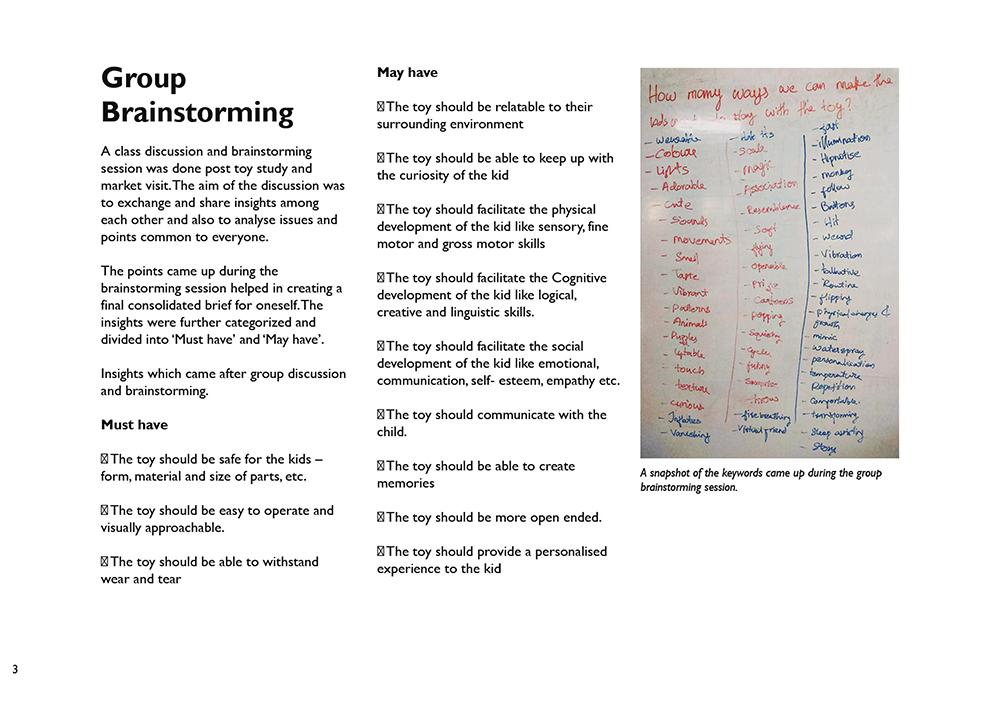 Group
Brainstorming
A class discussion and brainstorming
session was done post toy study and
market visit.The aim of the discussion was
to exchange and share insights among
each other and also to analyse issues and
points common to everyone.
The points came up during the
brainstorming session helped in creating a
final consolidated brief for oneself.The
insights were further categorized and
divided into ‘Must have’ and ‘May have’.
Insights which came after group discussion
and brainstorming.
Must have
The toy should be safe for the kids –
form, material and size of parts, etc.
The toy should be easy to operate and
visually approachable.
The toy should be able to withstand
wear and tear
May have
The toy should be relatable to their
surrounding environment
The toy should be able to keep up with
the curiosity of the kid
The toy should facilitate the physical
development of the kid like sensory, fine
motor and gross motor skills
The toy should facilitate the Cognitive
development of the kid like logical,
creative and linguistic skills.
The toy should facilitate the social
development of the kid like emotional,
communication, self- esteem, empathy etc.
The toy should communicate with the
child.
The toy should be able to create
memories
The toy should be more open ended.
The toy should provide a personalised
experience to the kid
How many ways we can make the
play with the toy?
- Wearable
- Colour
- Lights
- Adorable
- Cute
- Sounds
- movements
- Smell
- Taste
- Vibrant
- Patterns
- Animals
- Puzzles
- touch
- texture
- curious
- Inflates
- Vanishing
- Scale
- magic
- Association
- Resemblence
- Soft
- flying
- Openable
- Prize
- Cartoons
- popping
- Squishy
- throw
- fire breathing
- Virtual friend
- illumination
- Hipnotise
- monkey
- follow
- Buttons
- Hit
- Vibration
- talkative
- Routine
- flipping
- Physical changes &
growth
- mimic
- Water spray
- personalization
- temperature
- Repetition
- Comfortable
- transforming
- Sleep assisting
A snapshot of the keywords came up during the group
brainstorming session.
3